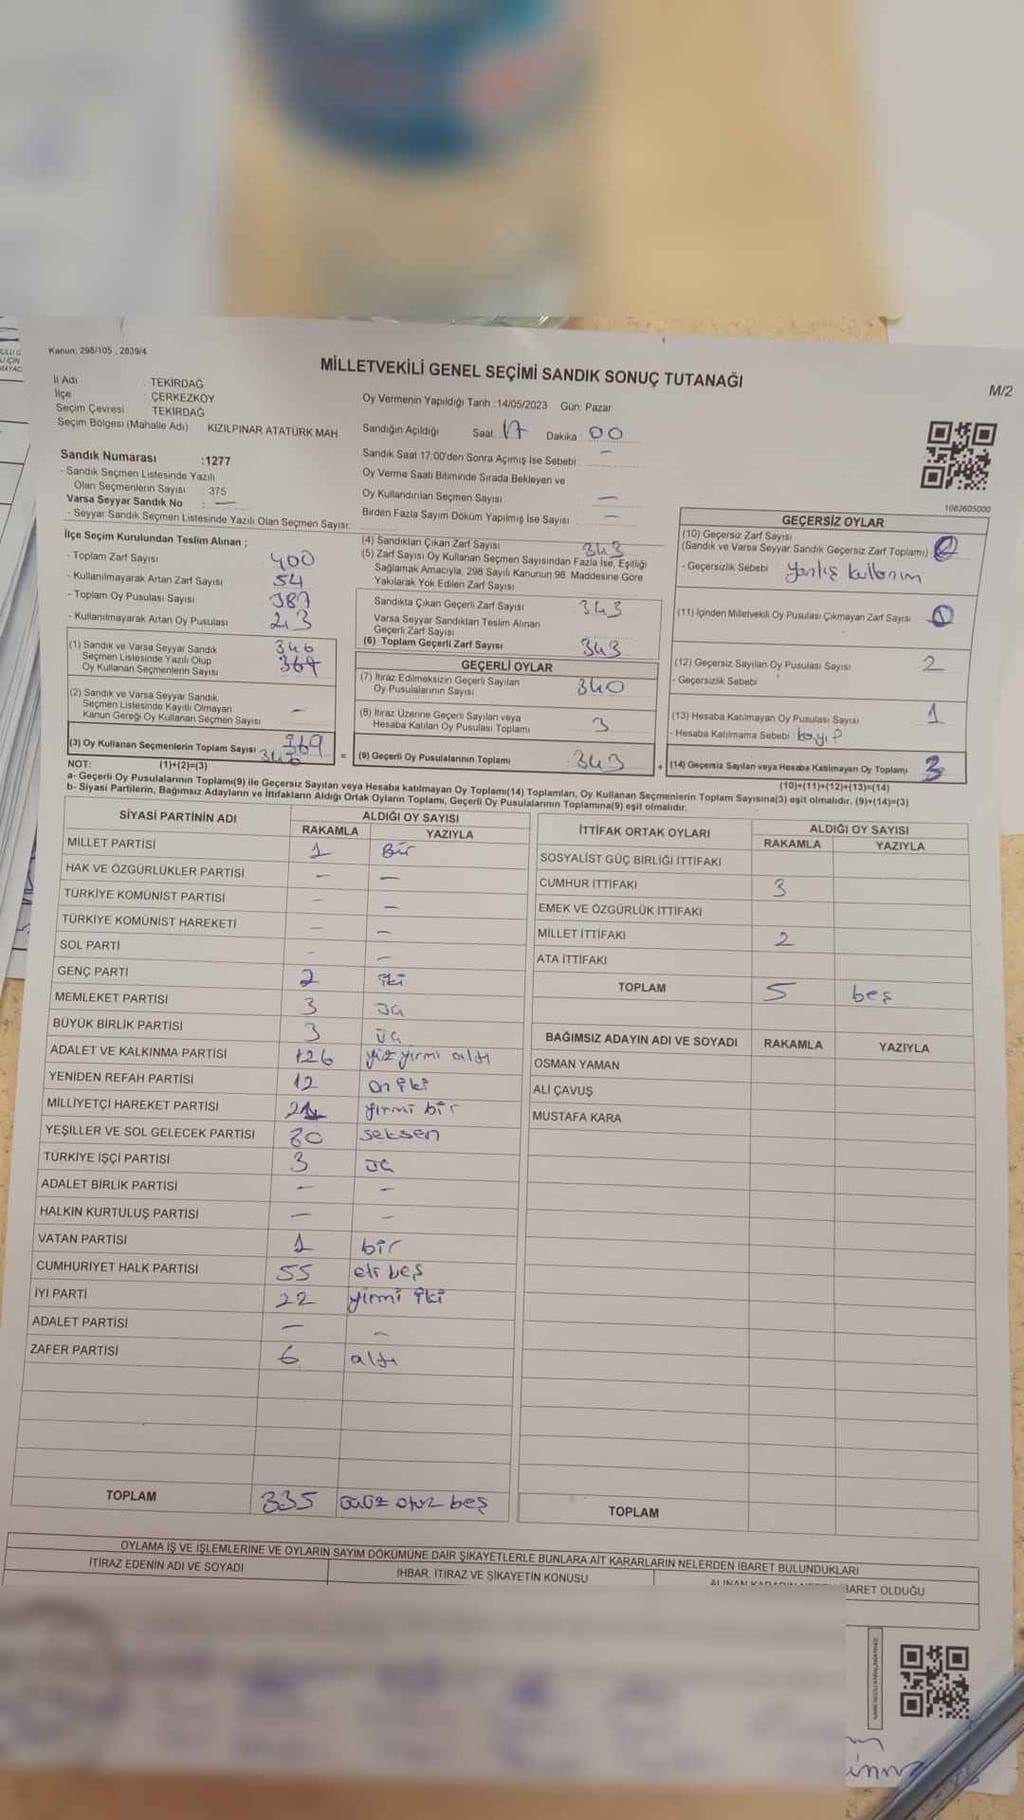 Kanun: 298/105 , 2839/4
MİLLETVEKİLİ GENEL SEÇİMİ SANDIK SONUÇ TUTANAĞI
M/2
İl Adı : TEKİRDAĞ
İlçe : ÇERKEZKÖY
Seçim Çevresi : TEKİRDAĞ
Seçim Bölgesi (Mahalle Adı) KIZILPINAR ATATÜRK MAH
Oy Vermenin Yapıldığı Tarih :14/05/2023 Gün: Pazar
Sandığın Açıldığı Saat 17 Dakika : 00
Sandık Saat 17:00'den Sonra Açımış İse Sebebi : –
Oy Verme Saati Bitiminde Sırada Bekleyen ve
Oy Kullandırılan Seçmen Sayısı –
Birden Fazla Sayım Döküm Yapılmış İse Sayısı –
Sandık Numarası :1277
- Sandık Seçmen Listesinde Yazılı
Olan Seçmenlerin Sayısı : 375
Varsa Seyyar Sandık No : –
- Seyyar Sandık Seçmen Listesinde Yazılı Olan Seçmen Sayısı:
1083605000
İlçe Seçim Kurulundan Teslim Alınan ;
- Toplam Zarf Sayısı 400
- Kullanılmayarak Artan Zarf Sayısı 54
- Toplam Oy Pusulası Sayısı 387
- Kullanılmayarak Artan Oy Pusulası
(1) Sandık ve Varsa Seyyar Sandık
Seçmen Listesinde Yazılı Olup
Oy Kullanan Seçmenlerin Sayısı
346
369
(2) Sandık ve Varsa Seyyar Sandık
Seçmen Listesinde Kayıtlı Olmayan
Kanun Gereği Oy Kullanan Seçmen Sayısı –
(3) Oy Kullanan Seçmenlerin Toplam Sayısı 369
346
NOT: (1)+(2)=(3)
(4) Sandıktan Çıkan Zarf Sayısı 343
(5) Zarf Sayısı Oy Kullanan Seçmen Sayısından Fazla İse, Eşitliği
Sağlamak Amacıyla, 298 Sayılı Kanunun 98. Maddesine Göre
Yakılarak Yok Edilen Zarf Sayısı
Sandıkta Çıkan Geçerli Zarf Sayısı : 343
Varsa Seyyar Sandıktan Teslim Alınan
Geçerli Zarf Sayısı
(6) Toplam Geçerli Zarf Sayısı 343
GEÇERLİ OYLAR
(7) İtiraz Edilmeksizin Geçerli Sayılan
Oy Pusulalarının Sayısı 340
(8) İtiraz Üzerine Geçerli Sayılan veya
Hesaba Katılan Oy Pusulası Toplamı 3
= (9) Geçerli Oy Pusulalarının Toplamı 343
GEÇERSİZ OYLAR
(10) Geçersiz Zarf Sayısı
(Sandık ve Varsa Seyyar Sandık Geçersiz Zarf Toplamı)
- Geçersizlik Sebebi yanlış kullanım
(11) İçinden Milletvekili Oy Pusulası Çıkmayan Zarf Sayısı
(12) Geçersiz Sayılan Oy Pusulası Sayısı 2
- Geçersizlik Sebebi :
(13) Hesaba Katılmayan Oy Pusulası Sayısı 1
- Hesaba Katılmama Sebebi : kayıp
+ (14) Geçersiz Sayılan veya Hesaba Katılmayan Oy Toplamı 3
(10)+(11)+(12)+(13)=(14)
a- Geçerli Oy Pusulalarının Toplamı(9) ile Geçersiz Sayılan veya Hesaba katılmayan Oy Toplamı(14) Toplamları, Oy Kullanan Seçmenlerin Toplam Sayısına(3) eşit olmalıdır. (9)+(14)=(3)
b- Siyasi Partilerin, Bağımsız Adayların ve İttifakların Aldığı Ortak Oyların Toplamı, Geçerli Oy Pusulalarının Toplamına(9) eşit olmalıdır.
SİYASİ PARTİNİN ADI ALDIĞI OY SAYISI
RAKAMLA YAZIYLA
MİLLET PARTİSİ 1 Bir
HAK VE ÖZGÜRLÜKLER PARTİSİ – –
TÜRKİYE KOMÜNİST PARTİSİ – –
TÜRKİYE KOMÜNİST HAREKETİ – –
SOL PARTİ – –
GENÇ PARTİ 2 iki
MEMLEKET PARTİSİ 3 üç
BÜYÜK BİRLİK PARTİSİ 3 üç
ADALET VE KALKINMA PARTİSİ 126 yüz yirmi altı
YENİDEN REFAH PARTİSİ 12 on iki
MİLLİYETÇİ HAREKET PARTİSİ 21 yirmi bir
YEŞİLLER VE SOL GELECEK PARTİSİ 80 seksen
TÜRKİYE İŞÇİ PARTİSİ 3 üç
ADALET BİRLİK PARTİSİ – –
HALKIN KURTULUŞ PARTİSİ – –
VATAN PARTİSİ 1 bir
CUMHURİYET HALK PARTİSİ 55 eli beş
İYİ PARTİ 22 yirmi iki
ADALET PARTİSİ – –
ZAFER PARTİSİ 6 altı
TOPLAM 335 üçüz otuz beş
İTTİFAK ORTAK OYLARI ALDIĞI OY SAYISI
RAKAMLA YAZIYLA
SOSYALİST GÜÇ BİRLİĞİ İTTİFAKI
CUMHUR İTTİFAKI 3
EMEK VE ÖZGÜRLÜK İTTİFAKI
MİLLET İTTİFAKI 2
ATA İTTİFAKI
TOPLAM 5 beş
BAĞIMSIZ ADAYIN ADI VE SOYADI RAKAMLA YAZIYLA
OSMAN YAMAN
ALİ ÇAVUŞ
MUSTAFA KARA
TOPLAM
OYLAMA İŞ VE İŞLEMLERİNE VE OYLARIN SAYIM DÖKÜMÜNE DAİR ŞİKAYETLERLE BUNLARA AİT KARARLARIN NELERDEN İBARET BULUNDUKLARI
İTİRAZ EDENİN ADI VE SOYADI İHBAR, İTİRAZ VE ŞİKAYETİN KONUSU İBARET OLDUĞU